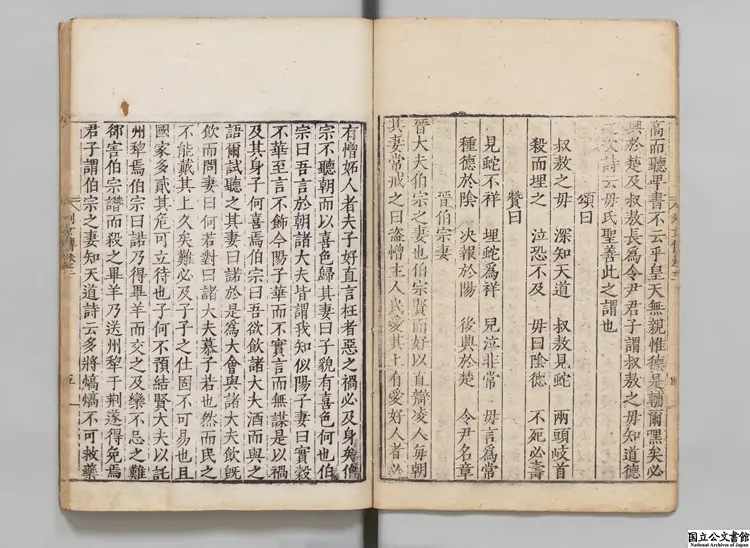 高而聽卑書不云乎皇天無親惟德是輔爾嘿矣必
興於楚及叔敖長為令尹君子謂叔敖之母知道德
之次詩云母氏聖善此之謂也
頌曰
叔敖之母 深知天道 叔敖見蛇 兩頭岐首
殺而埋之 泣恐不及 母曰陰德 不死必壽
贊曰
見蛇不祥 埋蛇為祥 兒泣非常 母言為常
種德於陰 決報於陽 後興於楚 令尹名章
晉伯宗妻
晉大夫伯宗之妻也伯宗賢而好以直辯凌人每朝
其妻常戒之曰盜憎主人民愛其上有愛好人者必
有憎妬人者夫子好直言枉者惡之禍必及身矣伯
宗不聽朝而以喜色歸其妻曰子貌有喜色何也伯
宗曰吾言於朝諸大夫皆謂我知似陽子妻曰實穀
不華至言不飾今陽子華而不實言而無謀是以禍
及其身子何喜焉伯宗曰吾欲飲諸大夫酒而與之
語爾試聽之其妻曰諾於是為大會與諸大夫飲既
飲而問妻曰何若對曰諸大夫慕子若也然而民之
不能戴其上久矣難必及子子之仕固不可易也且
國家多貳其危可立待也子何不預結賢大夫以託
州犁焉伯宗曰諾乃得畢羊而交之及欒不忌之難
郤害伯宗譖而殺之畢羊乃送州犁于荆遂得免焉
君子謂伯宗之妻知天道詩云多將熇熇不可救藥
国立公文書館
National Archives of Japan